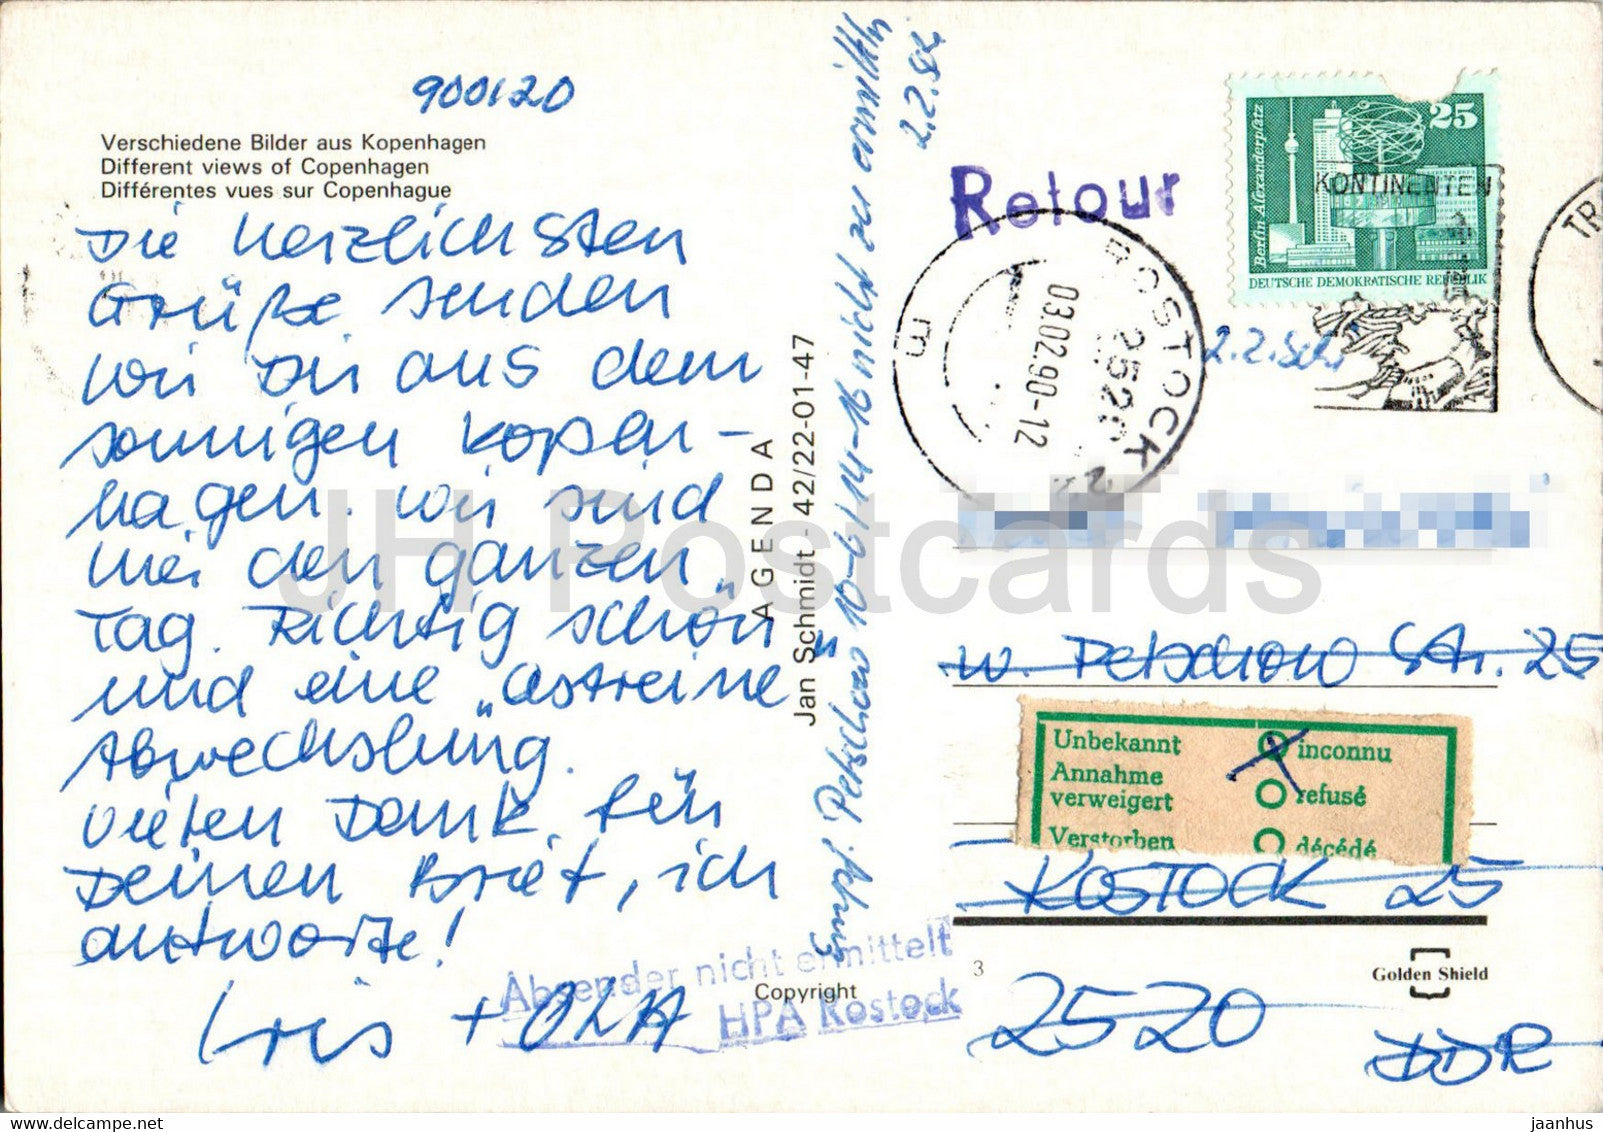 900120
Verschiedene Bilder aus Kopenhagen
Different views of Copenhagen
Différentes vues sur Copenhague
Die herzlichsten
Grüße senden
wir Dir aus dem
sonnigen Kopen-
hagen. Wir sind
hier den ganzen
Tag. Richtig schön
und eine "astreine"
Abwechslung.
Vielen Dank für
Deinen Brief, ich
antworte!
Iris + OLKA
AGENDA
Jan Schmidt - 42/22-01-47
Empf. Petschow 10-6/14-16 nicht zu ermitteln
2.2.
Retour
25
Berlin-Alexanderplatz
DEUTSCHE DEMOKRATISCHE REPUBLIK
KONTINENTEN
ROSTOCK 2
2520
03.02.90-12
E
TR
2.2.
W. Petschow Str. 25
Unbekannt inconnu
Annahme
verweigert refusé
Verstorben décédé
ROSTOCK 25
Golden Shield
3
Absender nicht ermittelt
HPA Rostock
Copyright
2520
DDR
JH Postcards
www.delcampe.net
jaanhus